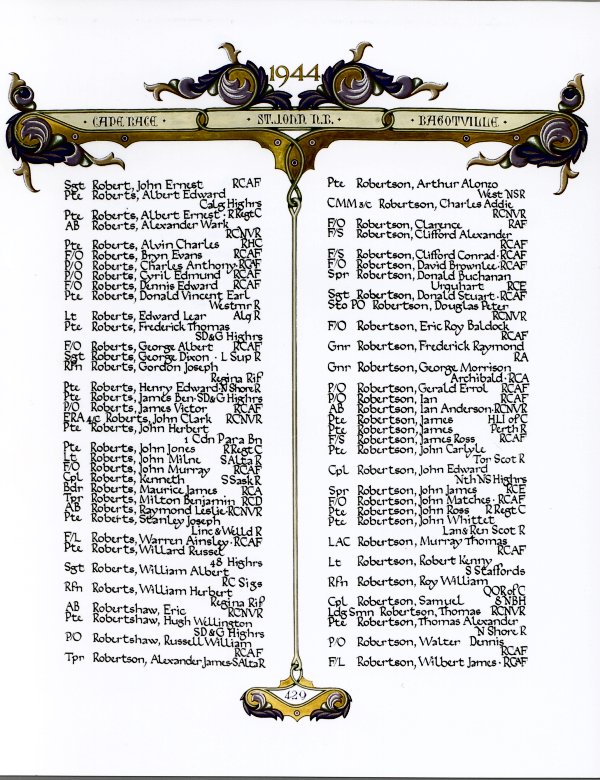 1944
· CAPE RACE · ST. JOHN N.B. · BAGOTVILLE ·
Sgt Robert, John Ernest RCAF
Pte Roberts, Albert Edward
Calg Highrs
Pte Roberts, Albert Ernest · R Regt C
AB Roberts, Alexander Wark
RCNVR
Pte Roberts, Alvin Charles RHC
F/O Roberts, Bryn Evans RCAF
P/O Roberts, Charles Anthony · RCAF
P/O Roberts, Cyril Edmund RCAF
F/O Roberts, Dennis Edward RCAF
Pte Roberts, Donald Vincent Earl
Westmr R
Lt Roberts, Edward Lear Alq R
Pte Roberts, Frederick Thomas
SD&G Highrs
F/O Roberts, George Albert RCAF
Sgt Roberts, George Dixon · L Sup R
Rfn Roberts, Gordon Joseph
Regina Rif
Pte Roberts, Henry Edward · N Shore R
Pte Roberts, James Ben · SD&G Highrs
P/O Roberts, James Victor RCAF
ERA 4/c Roberts, John Clark RCNVR
Pte Roberts, John Herbert
1 Cdn Para Bn
Pte Roberts, John Jones R Regt C
Lt Roberts, John Milne S Alta R
F/O Roberts, John Murray RCAF
Cpl Roberts, Kenneth S Sask R
Bdr Roberts, Maurice James RCA
Tpr Roberts, Milton Benjamin RCD
AB Roberts, Raymond Leslie · RCNVR
Pte Roberts, Stanley Joseph
Linc & Welld R
F/L Roberts, Warren Ainsley · RCAF
Pte Roberts, Willard Russel
48 Highrs
Sgt Roberts, William Albert
RC Sigs
Rfn Roberts, William Herbert
Regina Rif
AB Robertshaw, Eric RCNVR
Pte Robertshaw, Hugh Wellington
SD&G Highrs
P/O Robertshaw, Russell William
RCAF
Tpr Robertson, Alexander James · S Alta R
Pte Robertson, Arthur Alonzo
West NSR
CMM s/c Robertson, Charles Addie
RCNVR
F/O Robertson, Clarence RAF
F/S Robertson, Clifford Alexander
RCAF
F/S Robertson, Clifford Conrad · RCAF
F/O Robertson, David Brownlee · RCAF
Spr Robertson, Donald Buchanan
Urquhart RCE
Sgt Robertson, Donald Stuart · RCAF
Sto PO Robertson, Douglas Peter
RCNVR
F/O Robertson, Eric Roy Baldock
RCAF
Gnr Robertson, Frederick Raymond
RA
Gnr Robertson, George Morrison
Archibald · RCA
P/O Robertson, Gerald Errol RCAF
P/O Robertson, Ian RCAF
AB Robertson, Ian Anderson · RCNVR
Pte Robertson, James HLI of C
Pte Robertson, James Perth R
F/S Robertson, James Ross RCAF
Pte Robertson, John Carlyle
Tor Scot R
Cpl Robertson, John Edward
Nth NS Highrs
Spr Robertson, John James RCE
F/O Robertson, John Matches · RCAF
Pte Robertson, John Ross R Regt C
Pte Robertson, John Whittet
Lan & Ren Scot R
LAC Robertson, Murray Thomas
RCAF
Lt Robertson, Robert Kenny
S Staffords
Rfn Robertson, Roy William
QOR of C
Cpl Robertson, Samuel S NBH
Ldg Smn Robertson, Thomas RCNVR
Pte Robertson, Thomas Alexander
N Shore R
P/O Robertson, Walter Dennis
RCAF
F/L Robertson, Wilbert James · RCAF
429